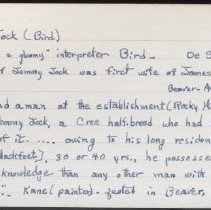 Jock (Bird)
a gloomy" interpreter Bird — De S
of Jemmy Jock was first wife of James
Beaver - A
had a man at the establishment (Rocky M
Jemmy Jock, a Cree half-breed who had
of it. .... owing to his long residen
Blackfeet], 30 or 40 yrs., he possesse
knowledge than any other man with
".. Kane (painter) - quoted in Beaver,